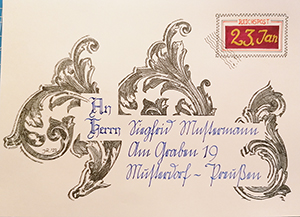 REICHSPOST
23. Jan
An
Herrn Siegfried Mustermann
Am Graben 19
Musterdorf – Preußen